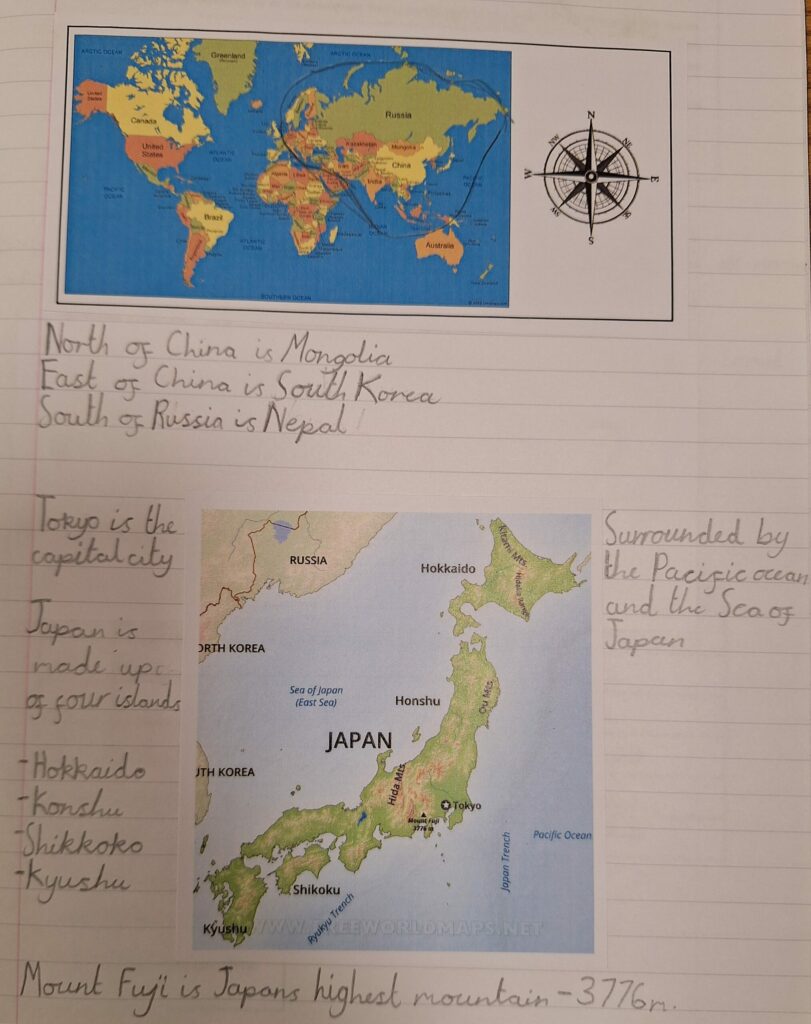 ARCTIC OCEAN
Greenland
ARCTIC OCEAN
United States
Canada
Russia
United States
ATLANTIC OCEAN
Kazakhstan
Mongolia
China
Iran
Algeria
Libya
India
PACIFIC OCEAN
PACIFIC OCEAN
Brazil
ATLANTIC OCEAN
INDIAN OCEAN
Madagascar
Australia
SOUTHERN OCEAN
N
NE
E
SE
S
SW
W
NW
North of China is Mongolia
East of China is South Korea
South of Russia is Nepal
Tokyo is the
capital city
Japan is
made up
of four islands
-Hokkaido
-Konshu
-Shikkoko
-Kyushu
RUSSIA
Hokkaido
Kitami Mts.
ORTH KOREA
Sea of Japan
(East Sea)
Honshu
Ou Mts.
JAPAN
UTH KOREA
Hida Mts.
Tokyo
Mount Fuji
3776 m
Pacific Ocean
Japan Trench
Shikoku
Ryukyu Trench
Kyushu
WWW.FREEWORLDMAPS.NET
Surrounded by
the Pacific ocean
and the Sea of
Japan
Mount Fuji is Japans highest mountain - 3776m.